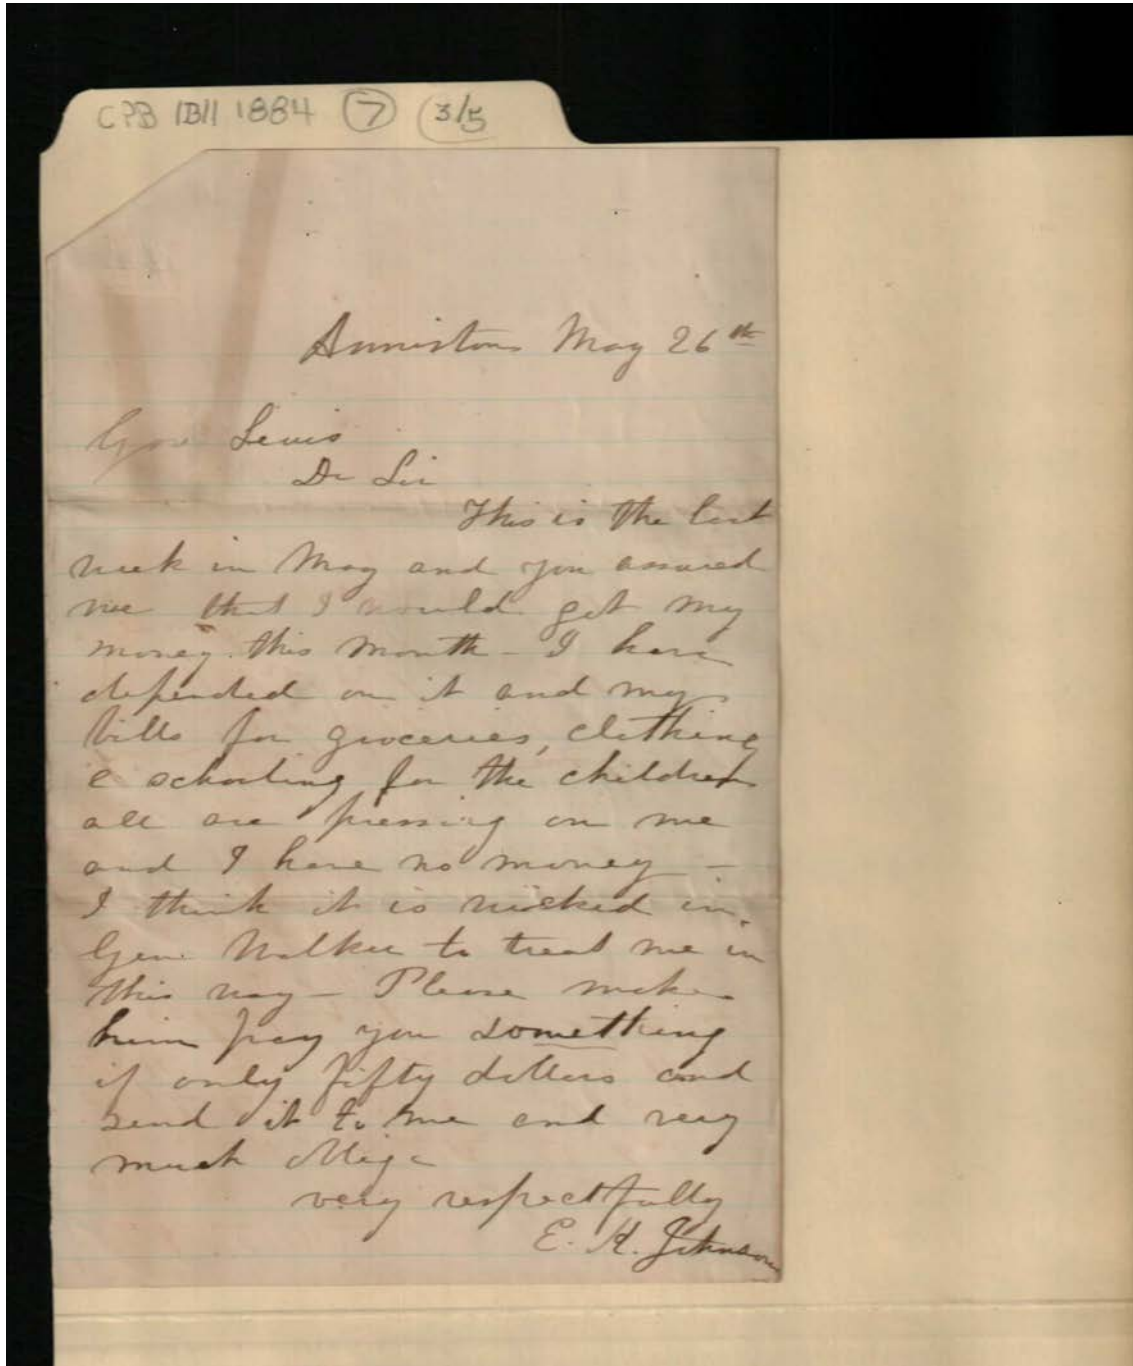 CPB IBII 1884 7 3/5
Anniston May 26th
Gov Lewis
Dr Sir
This is the last
week in May and you assured
me that I would get my
money this month - I have
depended on it and my
bills for groceries, clothing
& schooling for the children
all are pressing on me
and I have no money -
I think it is wicked in
Gen. Walker to treat me in
this way - Please make
him pay you something
if only fifty dollars and
send it to me and very
much oblige
very respectfully
E. H. Johnson